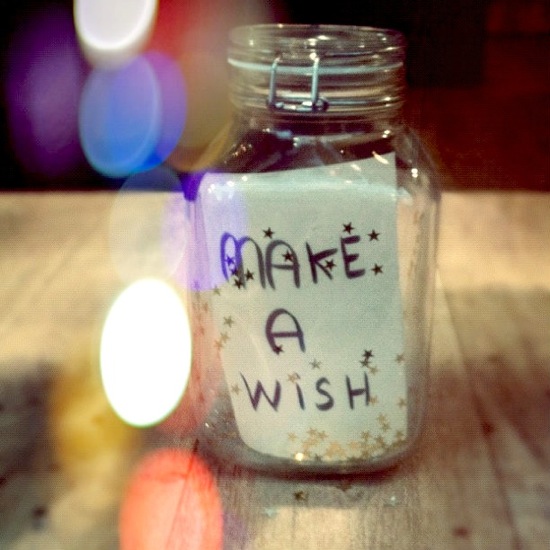 MAKE
A
WISH